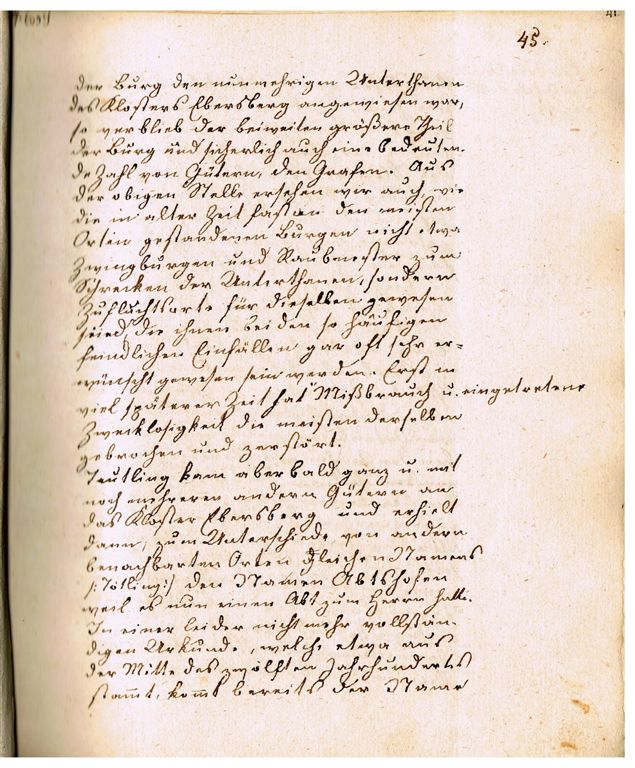 45.
der Burg den nunmehrigen Unterthanen
des Klosters Ebersberg angewiesen war,
so verblieb der beiweiten größere Theil
der Burg und sicherlich auch eine bedeuten-
de Zahl von Gütern, den Grafen. Aus
der obigen Stelle ersehen wir auch, wie
die in alter Zeit fast an den meisten
Orten gestandenen Burgen nicht etwa
Zwingburgen und Raubnester zum
Schrecken der Unterthanen, sondern
Zufluchtsorte für dieselben gewesen
seien, die ihnen bei den so häufigen
feindlichen Einfällen gar oft sehr er=
wünscht gewesen sein werden. Erst in
viel späterer Zeit hat Mißbrauch u. eingetretene
Zwecklosigkeit die meisten derselben
gebrochen und zerstört.
Teutling kam aber bald ganz u. mit
noch mehreren andern Gütern an
das Kloster Ebersberg und erhielt
dann, zum Unterschiede von andern
benachbarten Orten gleichen Namens
/:Tötling:/ den Namen Abtshofen
weil es nun einen Abt zum Herrn hatte.
In einer leider nicht mehr vollstän-
digen Urkunde, welche etwa aus
der Mitte des zwölften Jahrhunderts
stammt, kommt bereits der Name